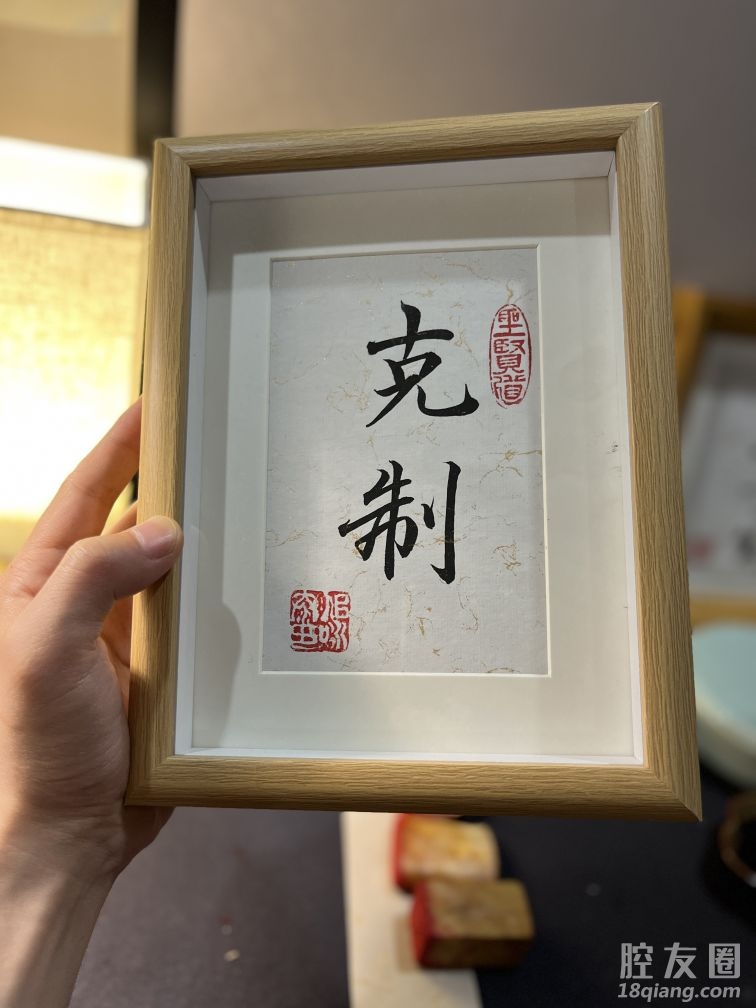 克
制
聖賢道
腔友圈
18qiang.com